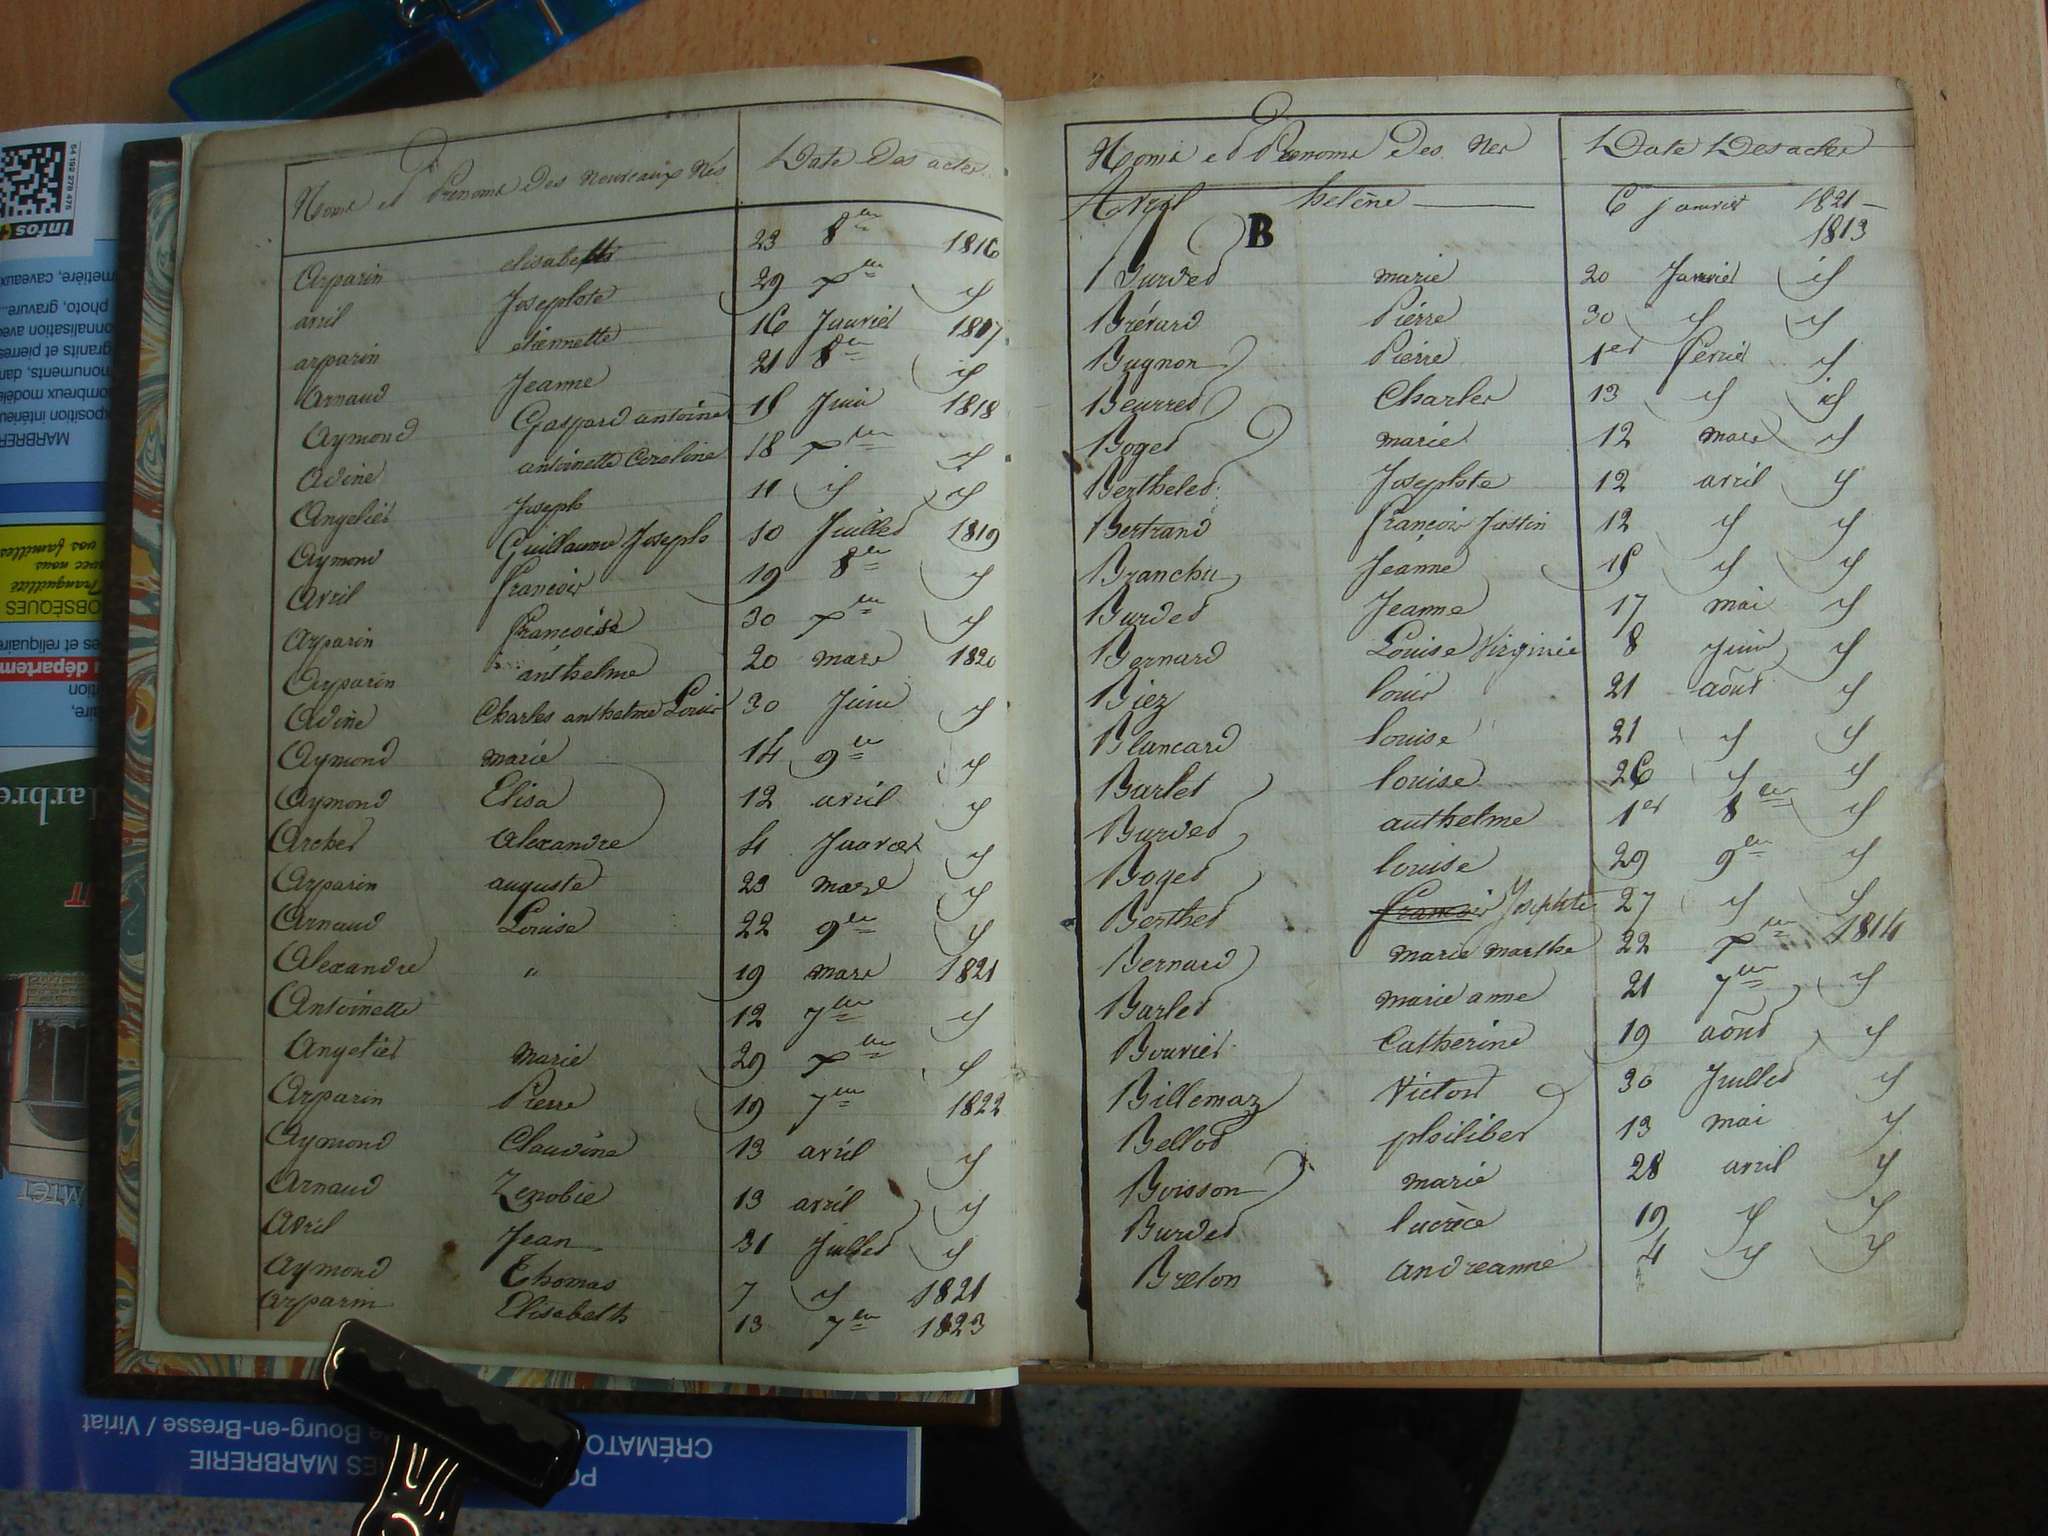 Noms et Prénoms Des Nouveaux Nés Date Des actes
Arparin elisabeth 23 8bre 1816
avril Josephte 29 xbre id
arparin etiennette 16 Janvier 1817
Arnaud Jeanne 21 8bre id
Aymond Gaspard antoine 15 Juin 1818
Avine antoinette Coraline 18 xbre id
Angelier Joseph 11 id id
Aymond Guillaume Joseph 10 Juillet 1819
Avril francois 19 8bre id
Arparin francoise 30 xbre id
Arparin anthelme 20 mars 1820
Avine Charles anthelme Louis 30 Juin id
Aymond marie 14 9bre id
Aymond Elisa 12 avril id
Archer alexandre 4 Janvier id
Arparin auguste 23 mars id
Arnaud Louise 22 9bre id
Alexandre " 19 mars 1821
Antoinette 12 7bre id
Angelier Marie 29 xbre id
Arparin Pierre 19 7bre 1822
Aymond Claudine 13 avril id
Arnaud Zenobie 13 avril id
Avril Jean 31 Juillet id
Aymond Thomas 7 id 1821
arparin Elisabeth 13 7bre 1823
Noms et Prenoms Des Nés Date Des actes
Avril helène 6 janvier 1821
B 1813
Burdet marie 20 Janvier id
Brérard Pierre 30 id id
Bugnon Pierre 1er fevrier id
Beurret Charles 13 id id
Boget marie 12 mars id
Berthelet Josephte 12 avril id
Bertrand francois Justin 12 id id
Branchu Jeanne 15 id id
Burdet Jeanne 17 mai id
Bernard Louise Virginie 8 Juin id
Biez louis 21 août id
Blancard louise 21 id id
Barlet louise 26 id id
Burdet anthelme 1er 8bre id
Boget louise 29 9bre id
Berthet francois Josephte 27 id id
Bernard marie marthe 22 xbre 1814
Barlet marie anne 21 7bre id
Bouvier Catherine 19 août id
Billemaz Victor 30 Juillet id
Bellod philiber 13 mai id
Boisson marie 28 avril id
Burdet lucrèce 19 id id
Breton andreanne 4 id id
54 192 278 475
Infos+
MARBRER
OBSÈQUES
Tranquillité
avec nous
vos familles
CRÉMATO
MARBRERIE
de Bourg-en-Bresse / Viriat